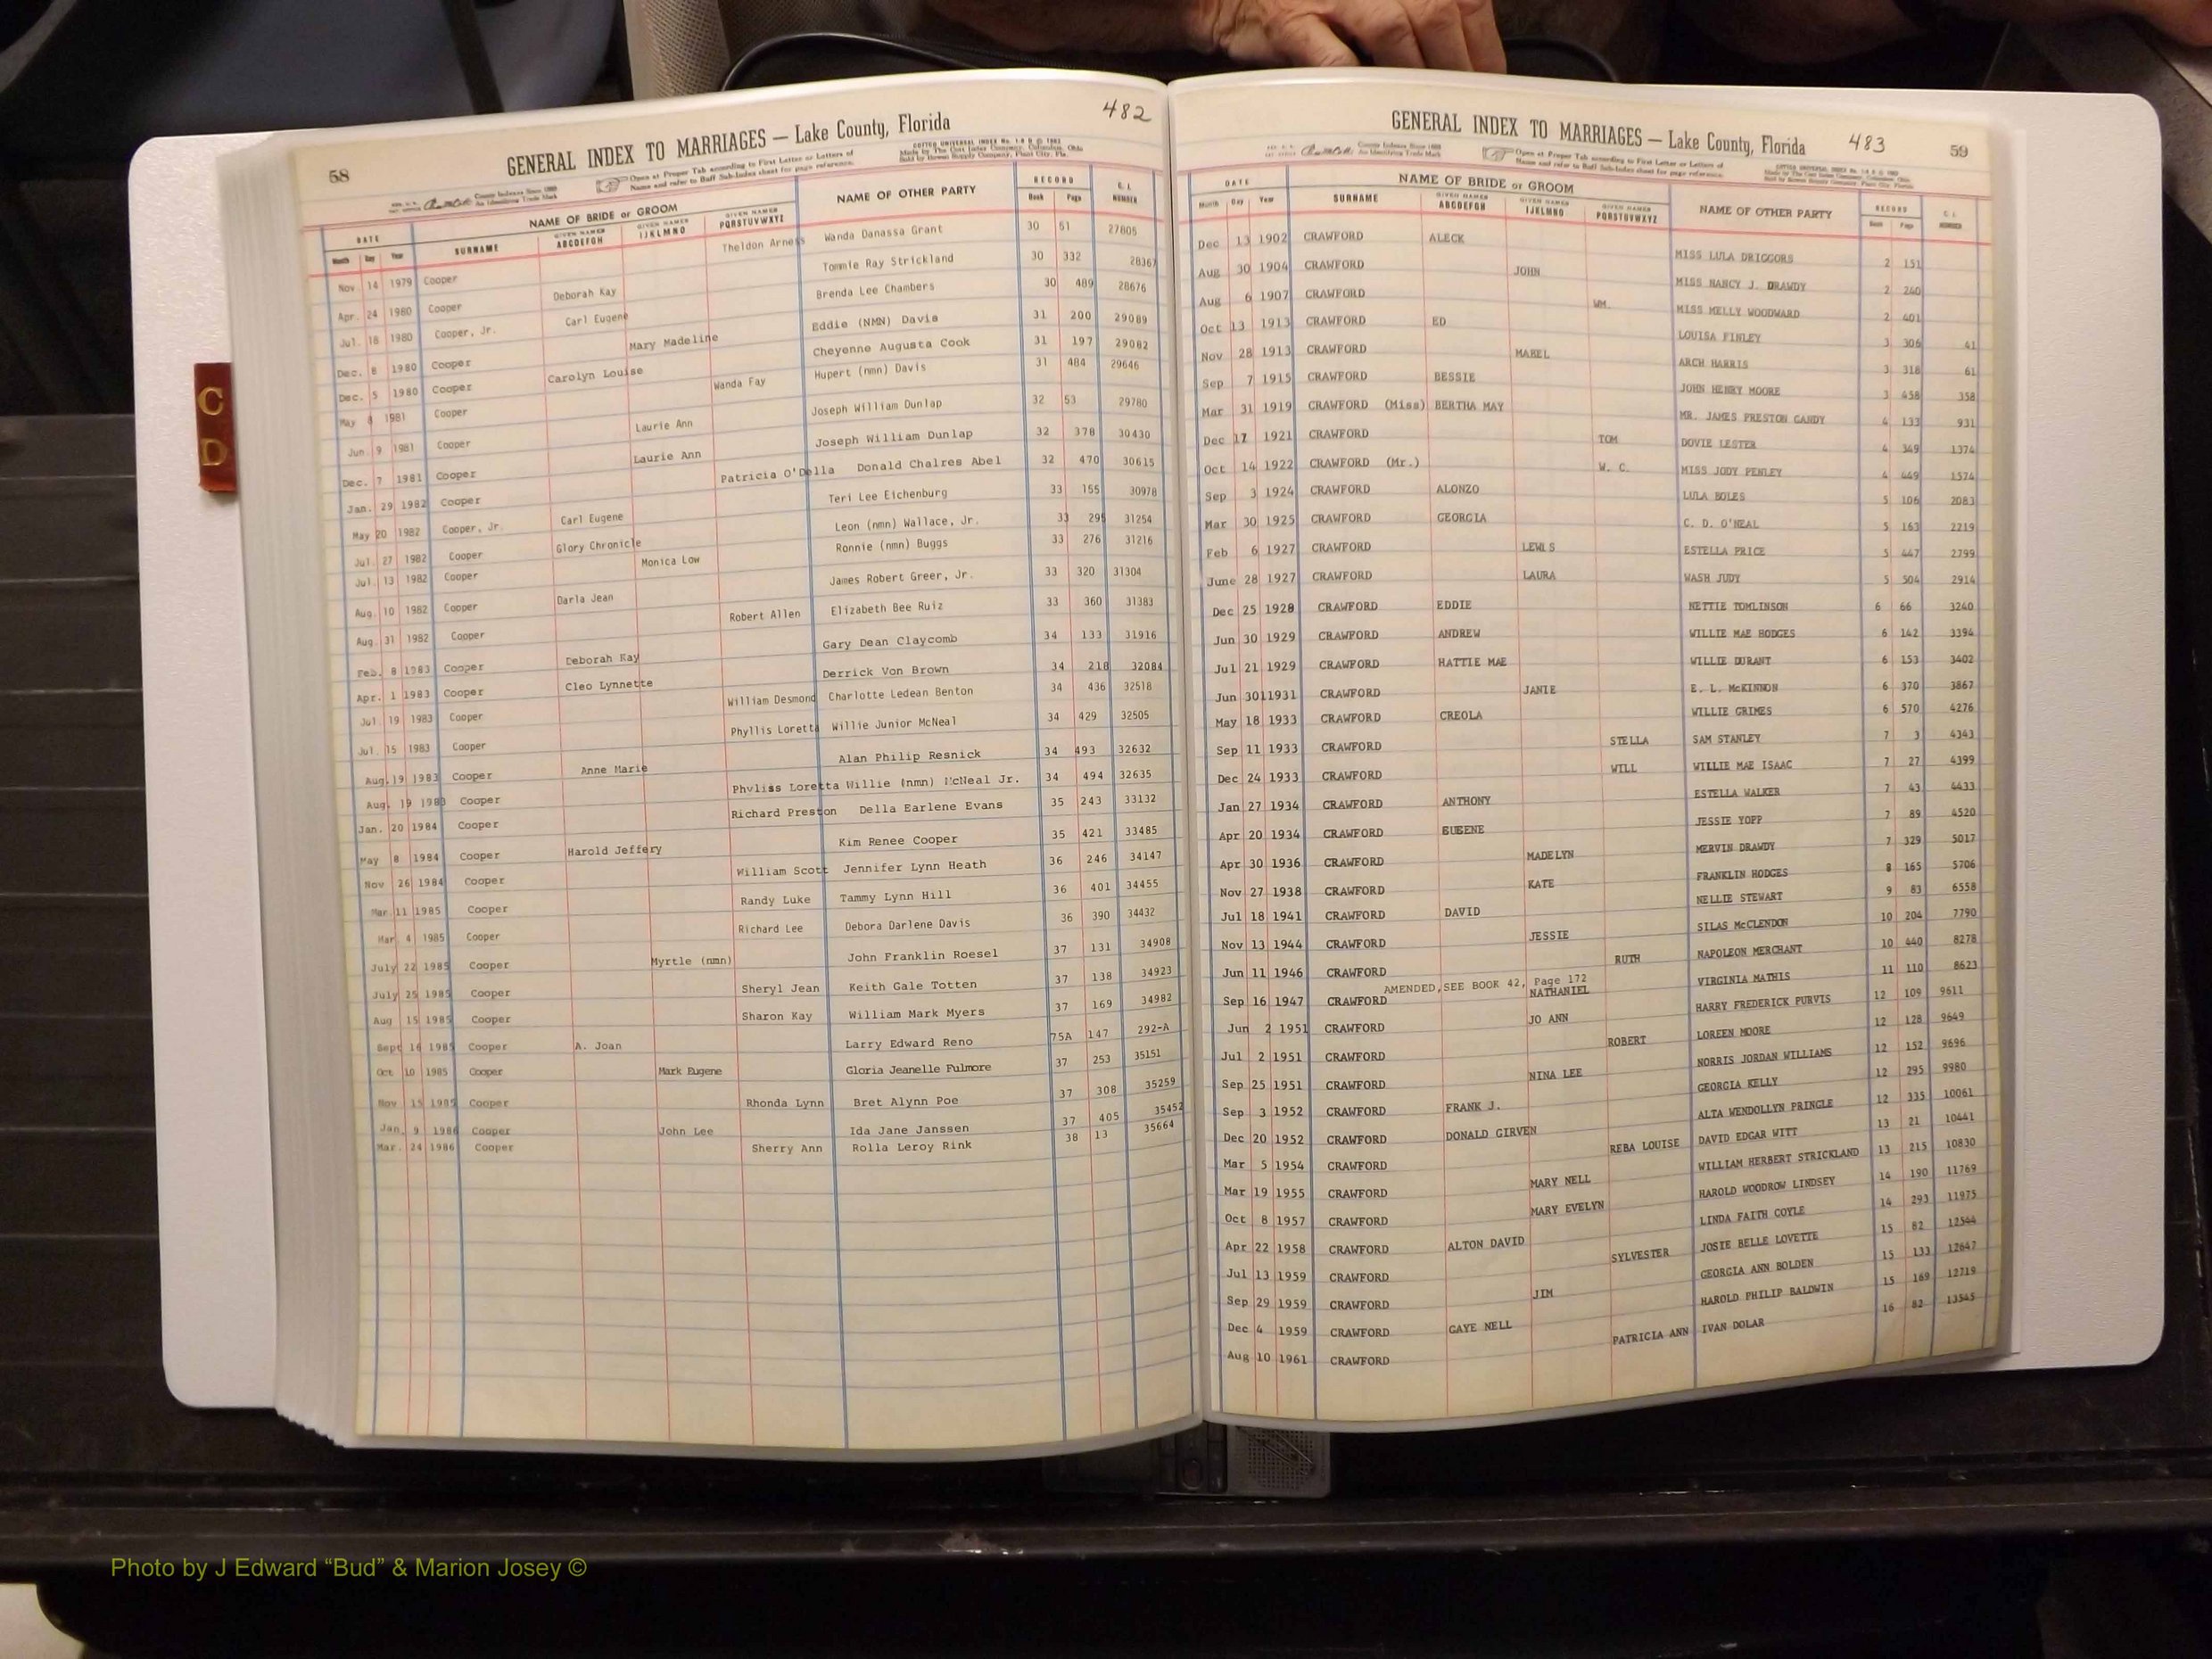 482
58
GENERAL INDEX TO MARRIAGES — Lake County, Florida
COTTCO UNIVERSAL INDEX
Open at Proper Tab according to First Letter or Letters of
Name and refer to Buff Sub-Index sheet for page reference.
DATE NAME OF BRIDE or GROOM NAME OF OTHER PARTY RECORD
Month Day Year SURNAME GIVEN NAMES ABCDEFGH GIVEN NAMES IJKLMNO GIVEN NAMES PQRSTUVWXYZ Book Page NUMBER
Nov. 14 1979 Cooper Theldon Arness Wanda Danassa Grant 30 51 27805
Apr. 24 1980 Cooper Deborah Kay Tommie Ray Strickland 30 332 28367
Jul. 18 1980 Cooper, Jr. Carl Eugene Brenda Lee Chambers 30 489 28676
Dec. 8 1980 Cooper Mary Madeline Eddie (NMN) Davis 31 200 29089
Dec. 5 1980 Cooper Carolyn Louise Cheyenne Augusta Cook 31 197 29082
May 1981 Cooper Wanda Fay Hupert (nmn) Davis 31 484 29646
Jun. 9 1981 Cooper Laurie Ann Joseph William Dunlap 32 53 29780
Dec. 7 1981 Cooper Laurie Ann Joseph William Dunlap 32 378 30430
Jan. 29 1982 Cooper Patricia O'Della Donald Chalres Abel 32 470 30615
May 20 1982 Cooper, Jr. Carl Eugene Teri Lee Eichenburg 33 155 30978
Jul. 27 1982 Cooper Glory Chronicle Leon (nmn) Wallace, Jr. 33 295 31254
Jul. 13 1982 Cooper Monica Low Ronnie (nmn) Buggs 33 276 31216
Aug. 10 1982 Cooper Darla Jean James Robert Greer, Jr. 33 320 31304
Aug. 31 1982 Cooper Robert Allen Elizabeth Bee Ruiz 33 360 31383
Feb. 8 1983 Cooper Deborah Kay Gary Dean Claycomb 34 133 31916
Apr. 1 1983 Cooper Cleo Lynnette Derrick Von Brown 34 218 32084
Jul. 19 1983 Cooper William Desmond Charlotte Ledean Benton 34 436 32518
Jul. 15 1983 Cooper Phyllis Loretta Willie Junior McNeal 34 429 32505
Aug. 19 1983 Cooper Anne Marie Alan Philip Resnick 34 493 32632
Aug. 19 1983 Cooper Phyliss Loretta Willie (nmn) McNeal Jr. 34 494 32635
Jan. 20 1984 Cooper Richard Preston Della Earlene Evans 35 243 33132
May 8 1984 Cooper Harold Jeffery Kim Renee Cooper 35 421 33485
Nov 26 1984 Cooper William Scott Jennifer Lynn Heath 36 246 34147
Mar. 11 1985 Cooper Randy Luke Tammy Lynn Hill 36 401 34455
Mar 4 1985 Cooper Richard Lee Debora Darlene Davis 36 390 34432
July 22 1985 Cooper Myrtle (nmn) John Franklin Roesel 37 131 34908
July 25 1985 Cooper Sheryl Jean Keith Gale Totten 37 138 34923
Aug 15 1985 Cooper Sharon Kay William Mark Myers 37 169 34982
Sept 16 1985 Cooper A. Joan Larry Edward Reno 75A 147 292-A
Oct 10 1985 Cooper Mark Eugene Gloria Jeanelle Fulmore 37 253 35151
Nov 15 1985 Cooper Rhonda Lynn Bret Alynn Poe 37 308 35259
Jan. 9 1986 Cooper John Lee Ida Jane Janssen 37 405 35452
Mar. 24 1986 Cooper Sherry Ann Rolla Leroy Rink 38 13 35664
C
D
GENERAL INDEX TO MARRIAGES — Lake County, Florida
483
59
Open at Proper Tab according to First Letter or Letters of
Name and refer to Buff Sub-Index sheet for page reference.
DATE NAME OF BRIDE or GROOM NAME OF OTHER PARTY RECORD
Month Day Year SURNAME GIVEN NAMES ABCDEFGH GIVEN NAMES IJKLMNO GIVEN NAMES PQRSTUVWXYZ Book Page NUMBER
Dec 13 1902 CRAWFORD ALECK MISS LULA DRIGGORS 2 151
Aug 30 1904 CRAWFORD JOHN MISS NANCY J. DRAWDY 2 240
Aug 6 1907 CRAWFORD WM. MISS MELLY WOODWARD 2 401
Oct 13 1913 CRAWFORD ED LOUISA FINLEY 3 306 41
Nov 28 1913 CRAWFORD MABEL ARCH HARRIS 3 318 61
Sep 7 1915 CRAWFORD BESSIE JOHN HENRY MOORE 3 458 358
Mar 31 1919 CRAWFORD (Miss) BERTHA MAY MR. JAMES PRESTON GANDY 4 133 931
Dec 17 1921 CRAWFORD TOM DOVIE LESTER 4 349 1374
Oct 14 1922 CRAWFORD (Mr.) W. C. MISS JODY PENLEY 4 449 1574
Sep 3 1924 CRAWFORD ALONZO LULA BOLES 5 106 2083
Mar 30 1925 CRAWFORD GEORGIA C. D. O'NEAL 5 163 2219
Feb 6 1927 CRAWFORD LEWIS ESTELLA PRICE 5 447 2799
June 28 1927 CRAWFORD LAURA WASH JUDY 5 504 2914
Dec 25 1928 CRAWFORD EDDIE NETTIE TOMLINSON 6 66 3240
Jun 30 1929 CRAWFORD ANDREW WILLIE MAE HODGES 6 142 3394
Jul 21 1929 CRAWFORD HATTIE MAE WILLIE DURANT 6 153 3402
Jun 30 1931 CRAWFORD JANIE E. L. McKINNON 6 370 3867
May 18 1933 CRAWFORD CREOLA WILLIE GRIMES 6 570 4276
Sep 11 1933 CRAWFORD STELLA SAM STANLEY 7 3 4343
Dec 24 1933 CRAWFORD WILL WILLIE MAE ISAAC 7 27 4399
Jan 27 1934 CRAWFORD ANTHONY ESTELLA WALKER 7 43 4433
Apr 20 1934 CRAWFORD EUGENE JESSIE YOPP 7 89 4520
Apr 30 1936 CRAWFORD MADELYN MERVIN DRAWDY 7 329 5017
Nov 27 1938 CRAWFORD KATE FRANKLIN HODGES 8 165 5706
Jul 18 1941 CRAWFORD DAVID NELLIE STEWART 9 83 6558
Nov 13 1944 CRAWFORD JESSIE SILAS McCLENDON 10 204 7790
Jun 11 1946 CRAWFORD RUTH NAPOLEON MERCHANT 10 440 8278
AMENDED, SEE BOOK 42, Page 172
Sep 16 1947 CRAWFORD NATHANIEL VIRGINIA MATHIS 11 110 8623
Jun 2 1951 CRAWFORD JO ANN HARRY FREDERICK PURVIS 12 109 9611
Jul 2 1951 CRAWFORD ROBERT LOREEN MOORE 12 128 9649
Sep 25 1951 CRAWFORD NINA LEE NORRIS JORDAN WILLIAMS 12 152 9696
Sep 3 1952 CRAWFORD FRANK J. GEORGIA KELLY 12 295 9980
Dec 20 1952 CRAWFORD DONALD GIRVEN ALTA WENDOLLYN PRINGLE 12 335 10061
Mar 5 1954 CRAWFORD REBA LOUISE DAVID EDGAR WITT 13 21 10441
Mar 19 1955 CRAWFORD MARY NELL WILLIAM HERBERT STRICKLAND 13 215 10830
Oct 8 1957 CRAWFORD MARY EVELYN HAROLD WOODROW LINDSEY 14 190 11769
Apr 22 1958 CRAWFORD ALTON DAVID LINDA FAITH COYLE 14 293 11975
Jul 13 1959 CRAWFORD SYLVESTER JOSIE BELLE LOVETTE 15 82 12544
Sep 29 1959 CRAWFORD JIM GEORGIA ANN BOLDEN 15 133 12647
Dec 4 1959 CRAWFORD GAYE NELL HAROLD PHILIP BALDWIN 15 169 12719
Aug 10 1961 CRAWFORD PATRICIA ANN IVAN DOLAR 16 82 13545
Photo by J Edward “Bud” & Marion Josey ©